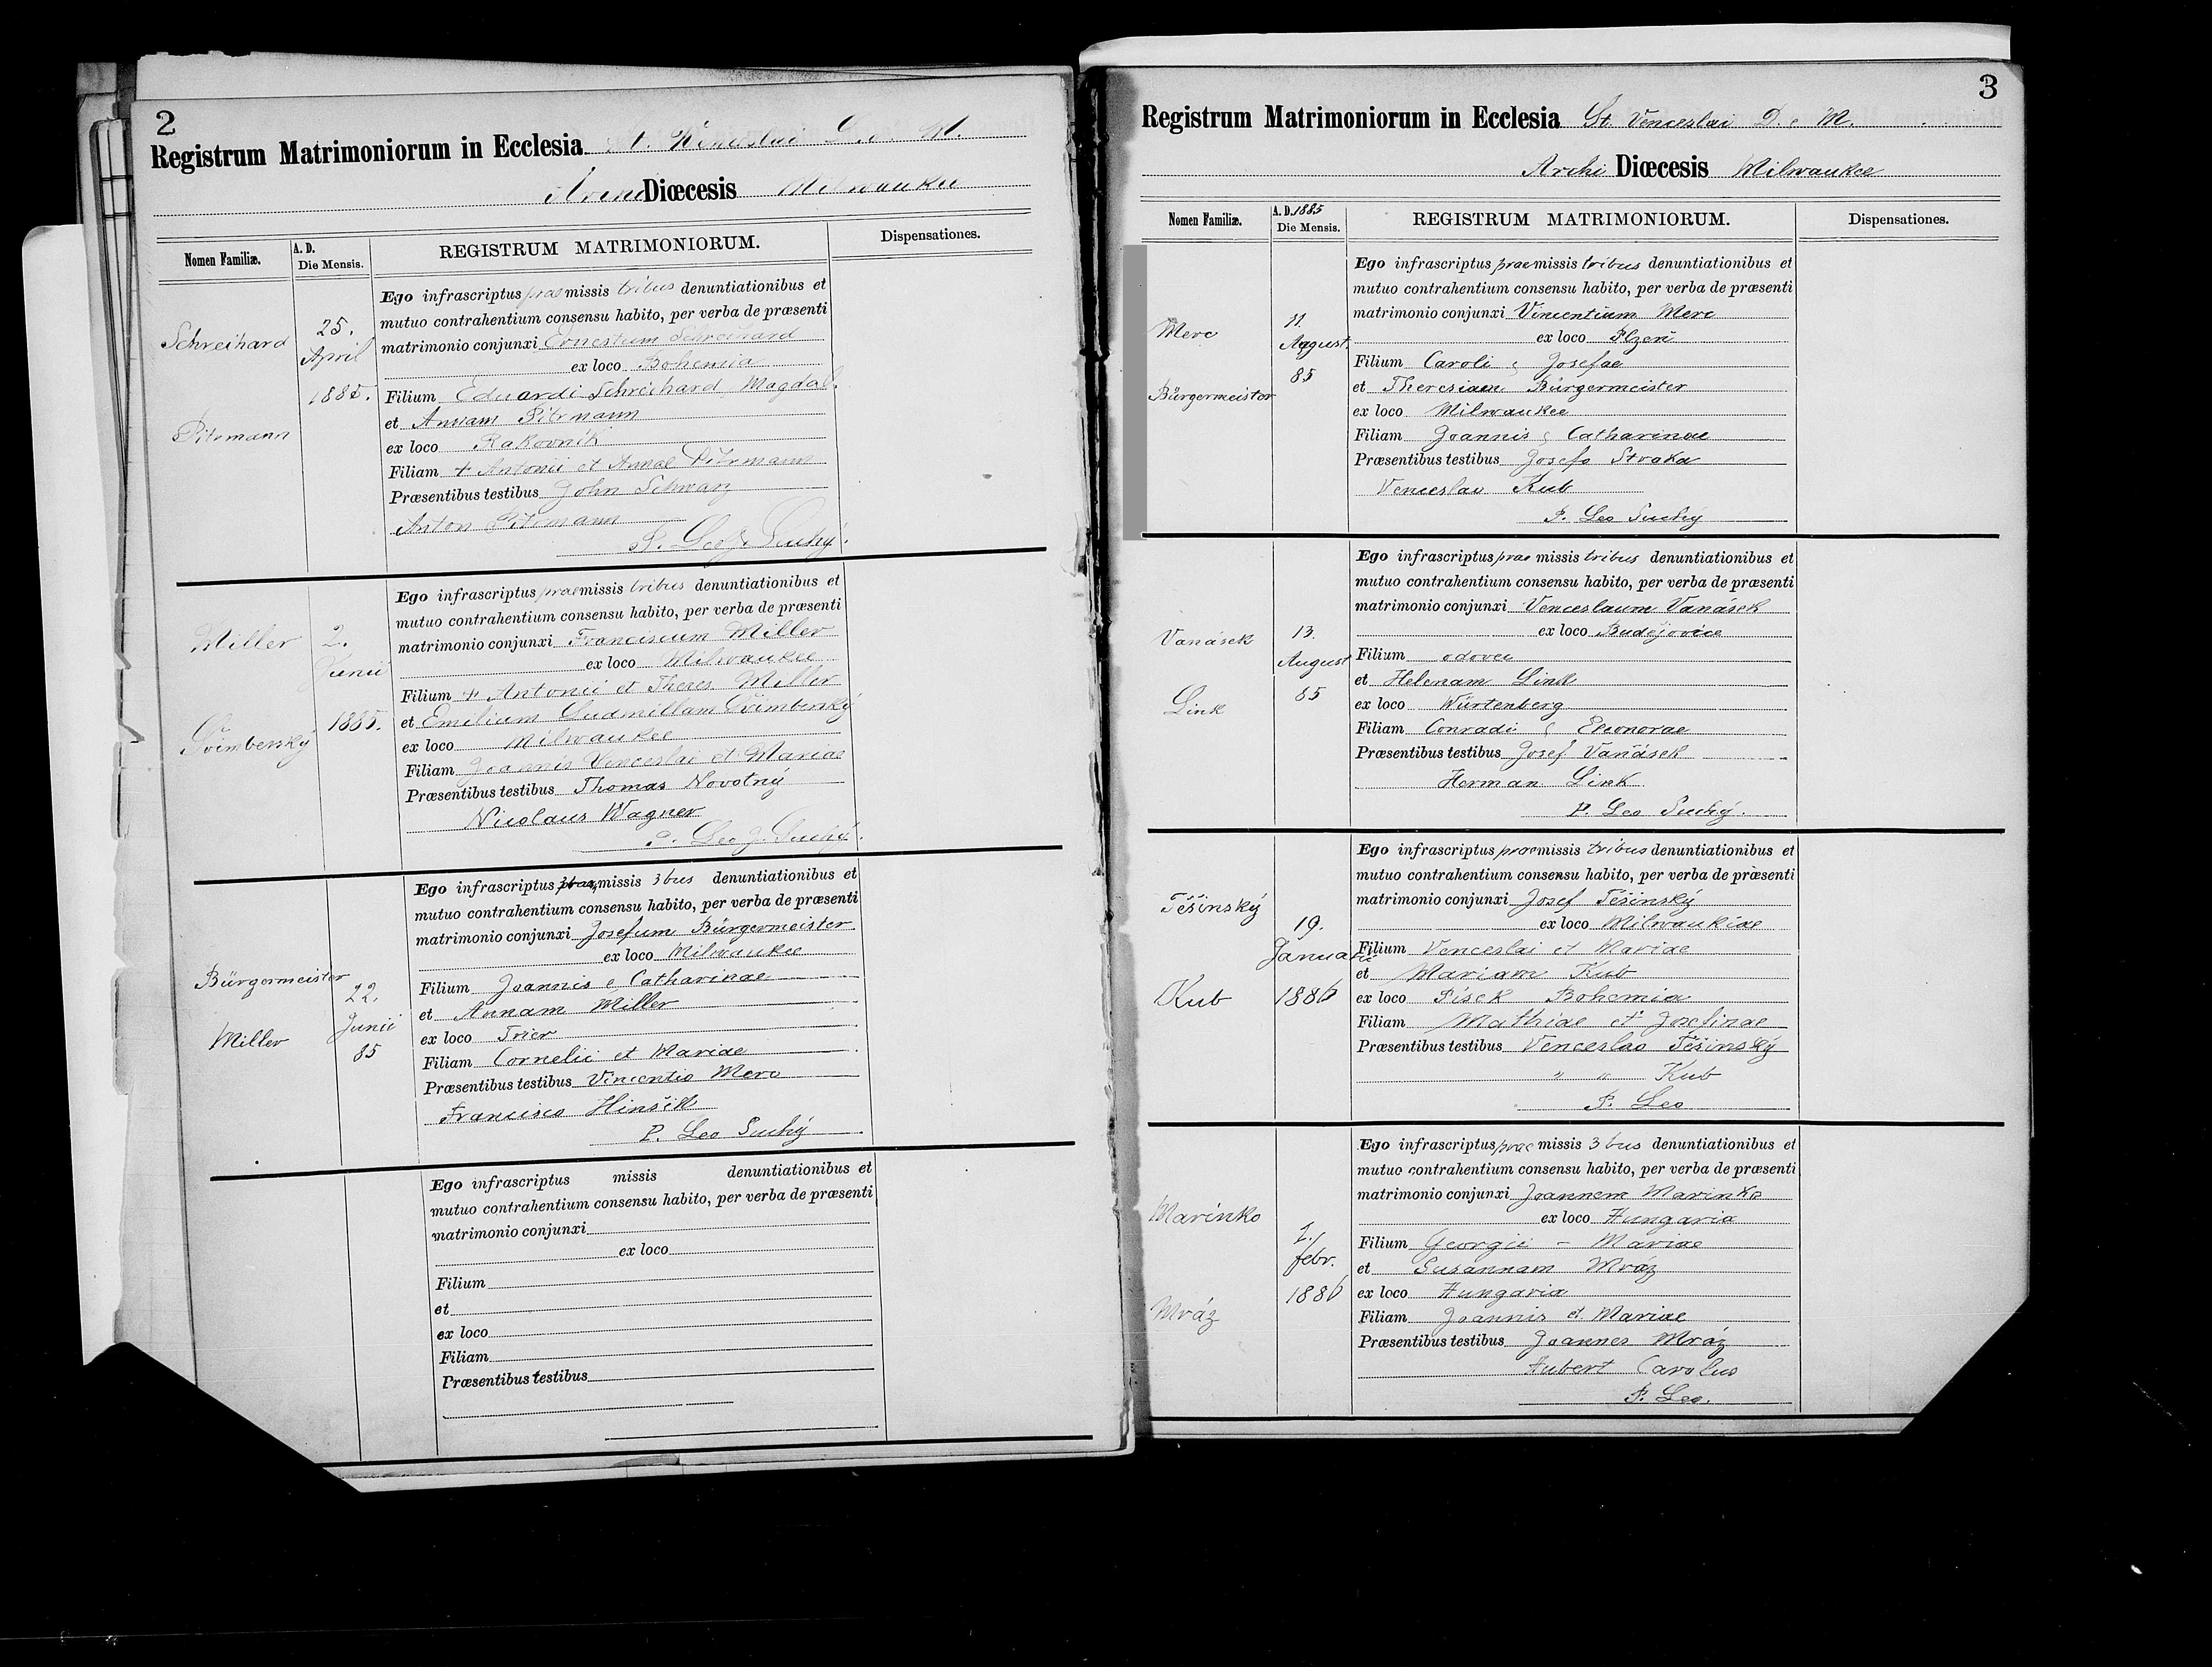 2
Registrum Matrimoniorum in Ecclesia St. Venceslai D. e. M.
Diœcesis Milwaukee
Nomen Familiæ.
A. D.
Die Mensis.
REGISTRUM MATRIMONIORUM.
Dispensationes.
Schreihard
Pitrmann
25.
April
1885.
Ego infrascriptus praemissis tribus denuntiationibus et
mutuo contrahentium consensu habito, per verba de præsenti
matrimonio conjunxi Ernestum Schreihard
ex loco Bohemia
Filium Eduardi Schreihard Magdal.
et Annam Pitrmann
ex loco Rakovník
Filiam + Antonii et Annae Pitrmann
Præsentibus testibus John Schwarz
Anton Pitrmann
P. Leo J. Suchý.
Miller
Švimberský
2.
Junii
1885.
Ego infrascriptus praemissis tribus denuntiationibus et
mutuo contrahentium consensu habito, per verba de præsenti
matrimonio conjunxi Franciscum Miller
ex loco Milwaukee
Filium + Antonii et Theres Miller
et Emilium Ludmillam Švimberský
ex loco Milwaukee
Filiam Joannis Venceslai et Mariae
Præsentibus testibus Thomas Novotný
Nicolaus Wagner
P. Leo J. Suchý.
Bürgermeister
Miller
22.
Junii
85
Ego infrascriptus missis 3bus denuntiationibus et
mutuo contrahentium consensu habito, per verba de præsenti
matrimonio conjunxi Josefum Bürgermeister
ex loco Milwaukee
Filium Joannis e Catharinae
et Annam Miller
ex loco Trier
Filiam Cornelii et Mariae
Præsentibus testibus Vincentio Merc
Francisco Hinšík
P. Leo Suchý
Ego infrascriptus missis denuntiationibus et
mutuo contrahentium consensu habito, per verba de præsenti
matrimonio conjunxi
ex loco
Filium
et
ex loco
Filiam
Præsentibus testibus
3
Registrum Matrimoniorum in Ecclesia St. Venceslai D. e M.
Archi Diœcesis Milwaukee
Nomen Familiæ.
A. D. 1885
Die Mensis.
REGISTRUM MATRIMONIORUM.
Dispensationes.
Merc
Bürgermeister
11.
August.
85
Ego infrascriptus praemissis tribus denuntiationibus et
mutuo contrahentium consensu habito, per verba de præsenti
matrimonio conjunxi Vincentium Merc
ex loco Plzeň
Filium Caroli & Josefae
et Theresiam Bürgermeister
ex loco Milwaukee
Filiam Joannis & Catharinae
Præsentibus testibus Josefo Straka
Venceslao Kub
P. Leo Suchý
Vanásek
Link
13.
August
85
Ego infrascriptus prae missis tribus denuntiationibus et
mutuo contrahentium consensu habito, per verba de præsenti
matrimonio conjunxi Venceslaum Vanásek
ex loco Budějovice
Filium vdovec
et Helenam Link
ex loco Würtenberg
Filiam Conradi & Eleonorae
Præsentibus testibus Josef Vanásek
Herman Link
P. Leo Suchý.
Těšinský
Kub
19.
Januarii
1886
Ego infrascriptus praemissis tribus denuntiationibus et
mutuo contrahentium consensu habito, per verba de præsenti
matrimonio conjunxi Josef Těšinský
ex loco Milwaukiae
Filium Venceslai et Mariae
et Mariam Kub
ex loco Písek Bohemia
Filiam Mathiae et Josefinae
Præsentibus testibus Venceslao Těšinský
" " Kub
P. Leo
Marinko
Mráz
febr.
1886
Ego infrascriptus prae missis 3 bus denuntiationibus et
mutuo contrahentium consensu habito, per verba de præsenti
matrimonio conjunxi Joannem Marinko
ex loco Hungaria
Filium Georgii - Mariae
et Susannam Mráz
ex loco Hungaria
Filiam Joannis et Mariae
Præsentibus testibus Joannes Mráz
Hubert Carolus
P. Leo.